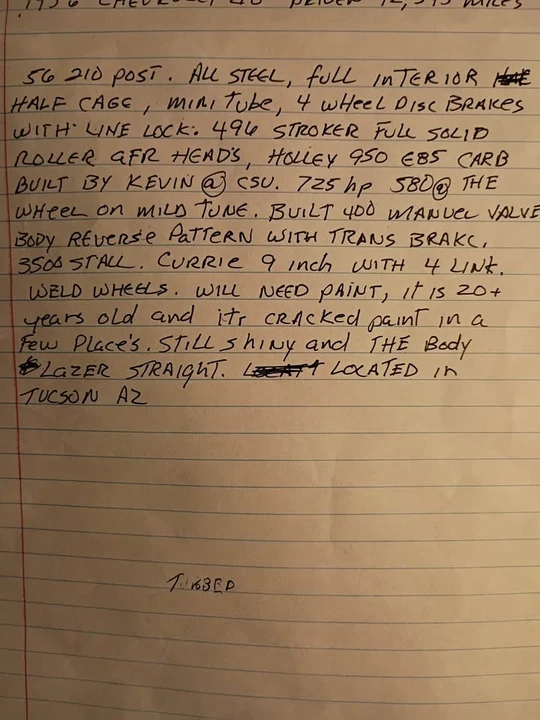 1956 CHEVROLET 210 DRIVEN 12,395 MILES
56 210 POST. ALL STEEL, full INTERIOR
HALF CAGE, mini Tube, 4 wHeel Disc BRAKES
WITH LINE LOCK. 496 STROKER FULL SOLID
ROLLER AFR HEAD'S, HOLLEY 950 EBS CARB
BUILT BY KEVIN @ CSU. 725 hp 580@ THE
WHeel on MILD TUNE. BUILT 400 MANUEL VALVE
BODY REVERSE PATTERN WITH TRANS BRAKE.
3500 STALL. CURRIE 9 inch WITH 4 LINK.
WELD WHEELS. WILL NEED PAINT, it is 20+
years old and its CRACKED paint in a
Few PLACE'S. STILL shiny and THE Body
LAZER STRAIGHT. LOCATED in
TUCSON AZ
TUBBED